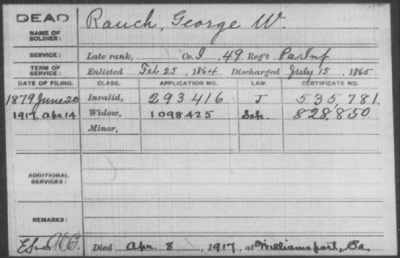 DEAD
NAME OF SOLDIER: Rauch, George W.
SERVICE: Late rank, Co. I, 49 Reg't Pa Inf
TERM OF SERVICE: Enlisted Feb 25, 1864 Discharged July 15, 1865
DATE OF FILING. CLASS. APPLICATION NO. LAW. CERTIFICATE NO.
1879 June 20 Invalid, 293416 J 535,781.
1917, Apr. 14 Widow, 1098425 828,850
Minor,
ADDITIONAL SERVICES:
REMARKS:
Died Apr. 8, 1917, at Williamsport, Pa.